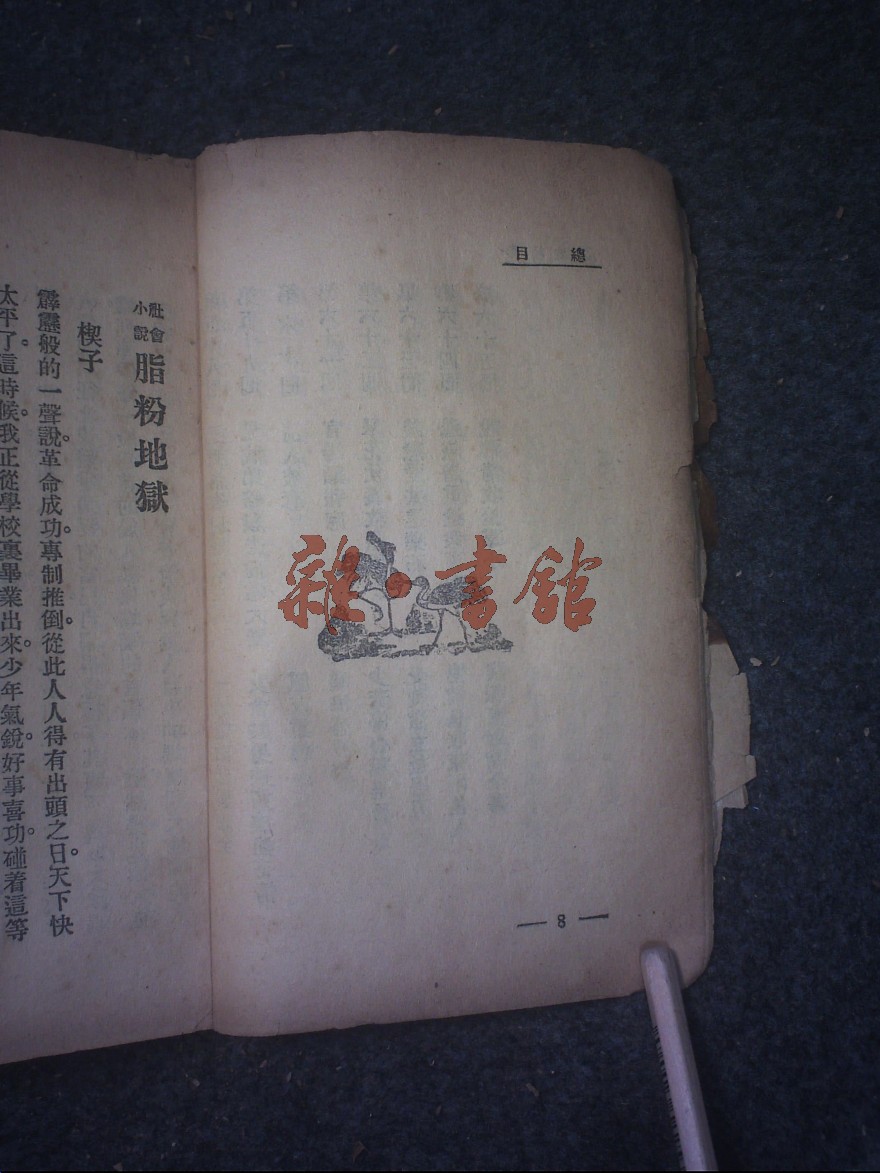 總目
雜·書館
— 8 —
社會
小說
脂粉地獄
楔子
霹靂般的一聲。說革命成功。專制推倒。從此人人得有出頭之日。天下快
太平了。這時候。我正從學校裏畢業出來。少年氣銳。好事喜功。碰着這等